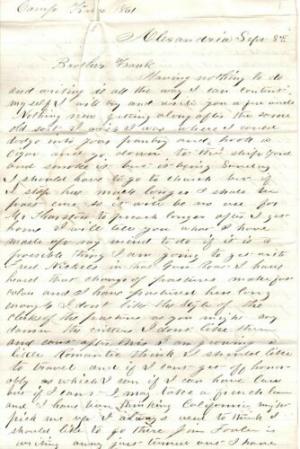 Camp Knox 1861
Alexandria Sept 8th
Brother Frank
Having nothing to do
and writing is all the way I can content
myself I will try and write you a few words
Nothing new getting along after the same
old sort I wish I was where I could
dodge into your pantry and hook a
cigar and go down to the ship yard
and smoke it but it being Sunday
I should have to go to church but if
I stop here much longer I shall be
past cure so it will be no use for
Mr Thurston to preach longer after I get
home I will tell you what I have
made up my mind to do if it is a
possible thing I am going to get with
Fred Nichols in his Gun boat I have
heard that change of pastures makes fat
calves and I have pastured here long
enough I don't like the style of the
chiefs of the pasture as you might say
damn the critters I dont like them
and cant after this I am growing a
little Romantic think I should like
to travel and if I can get off honor
ably as which I can if I can have leave
out if I cant I may take a french leave
and I have been thinking California might
pick me up I always used to think I
should like to go there Jim Foster is
writing away just tormenting I have